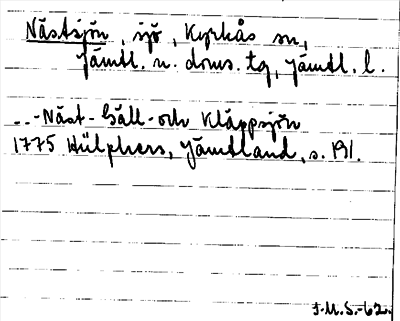 Nästsjön, sjö, Kyrkås sn,
Jämtl. n. doms. tg, Jämtl. l.
...-Näst-Gåll-och Kläppsjön
1775 Hülphers, Jämtland, s. 191.
J.M.S.-62.